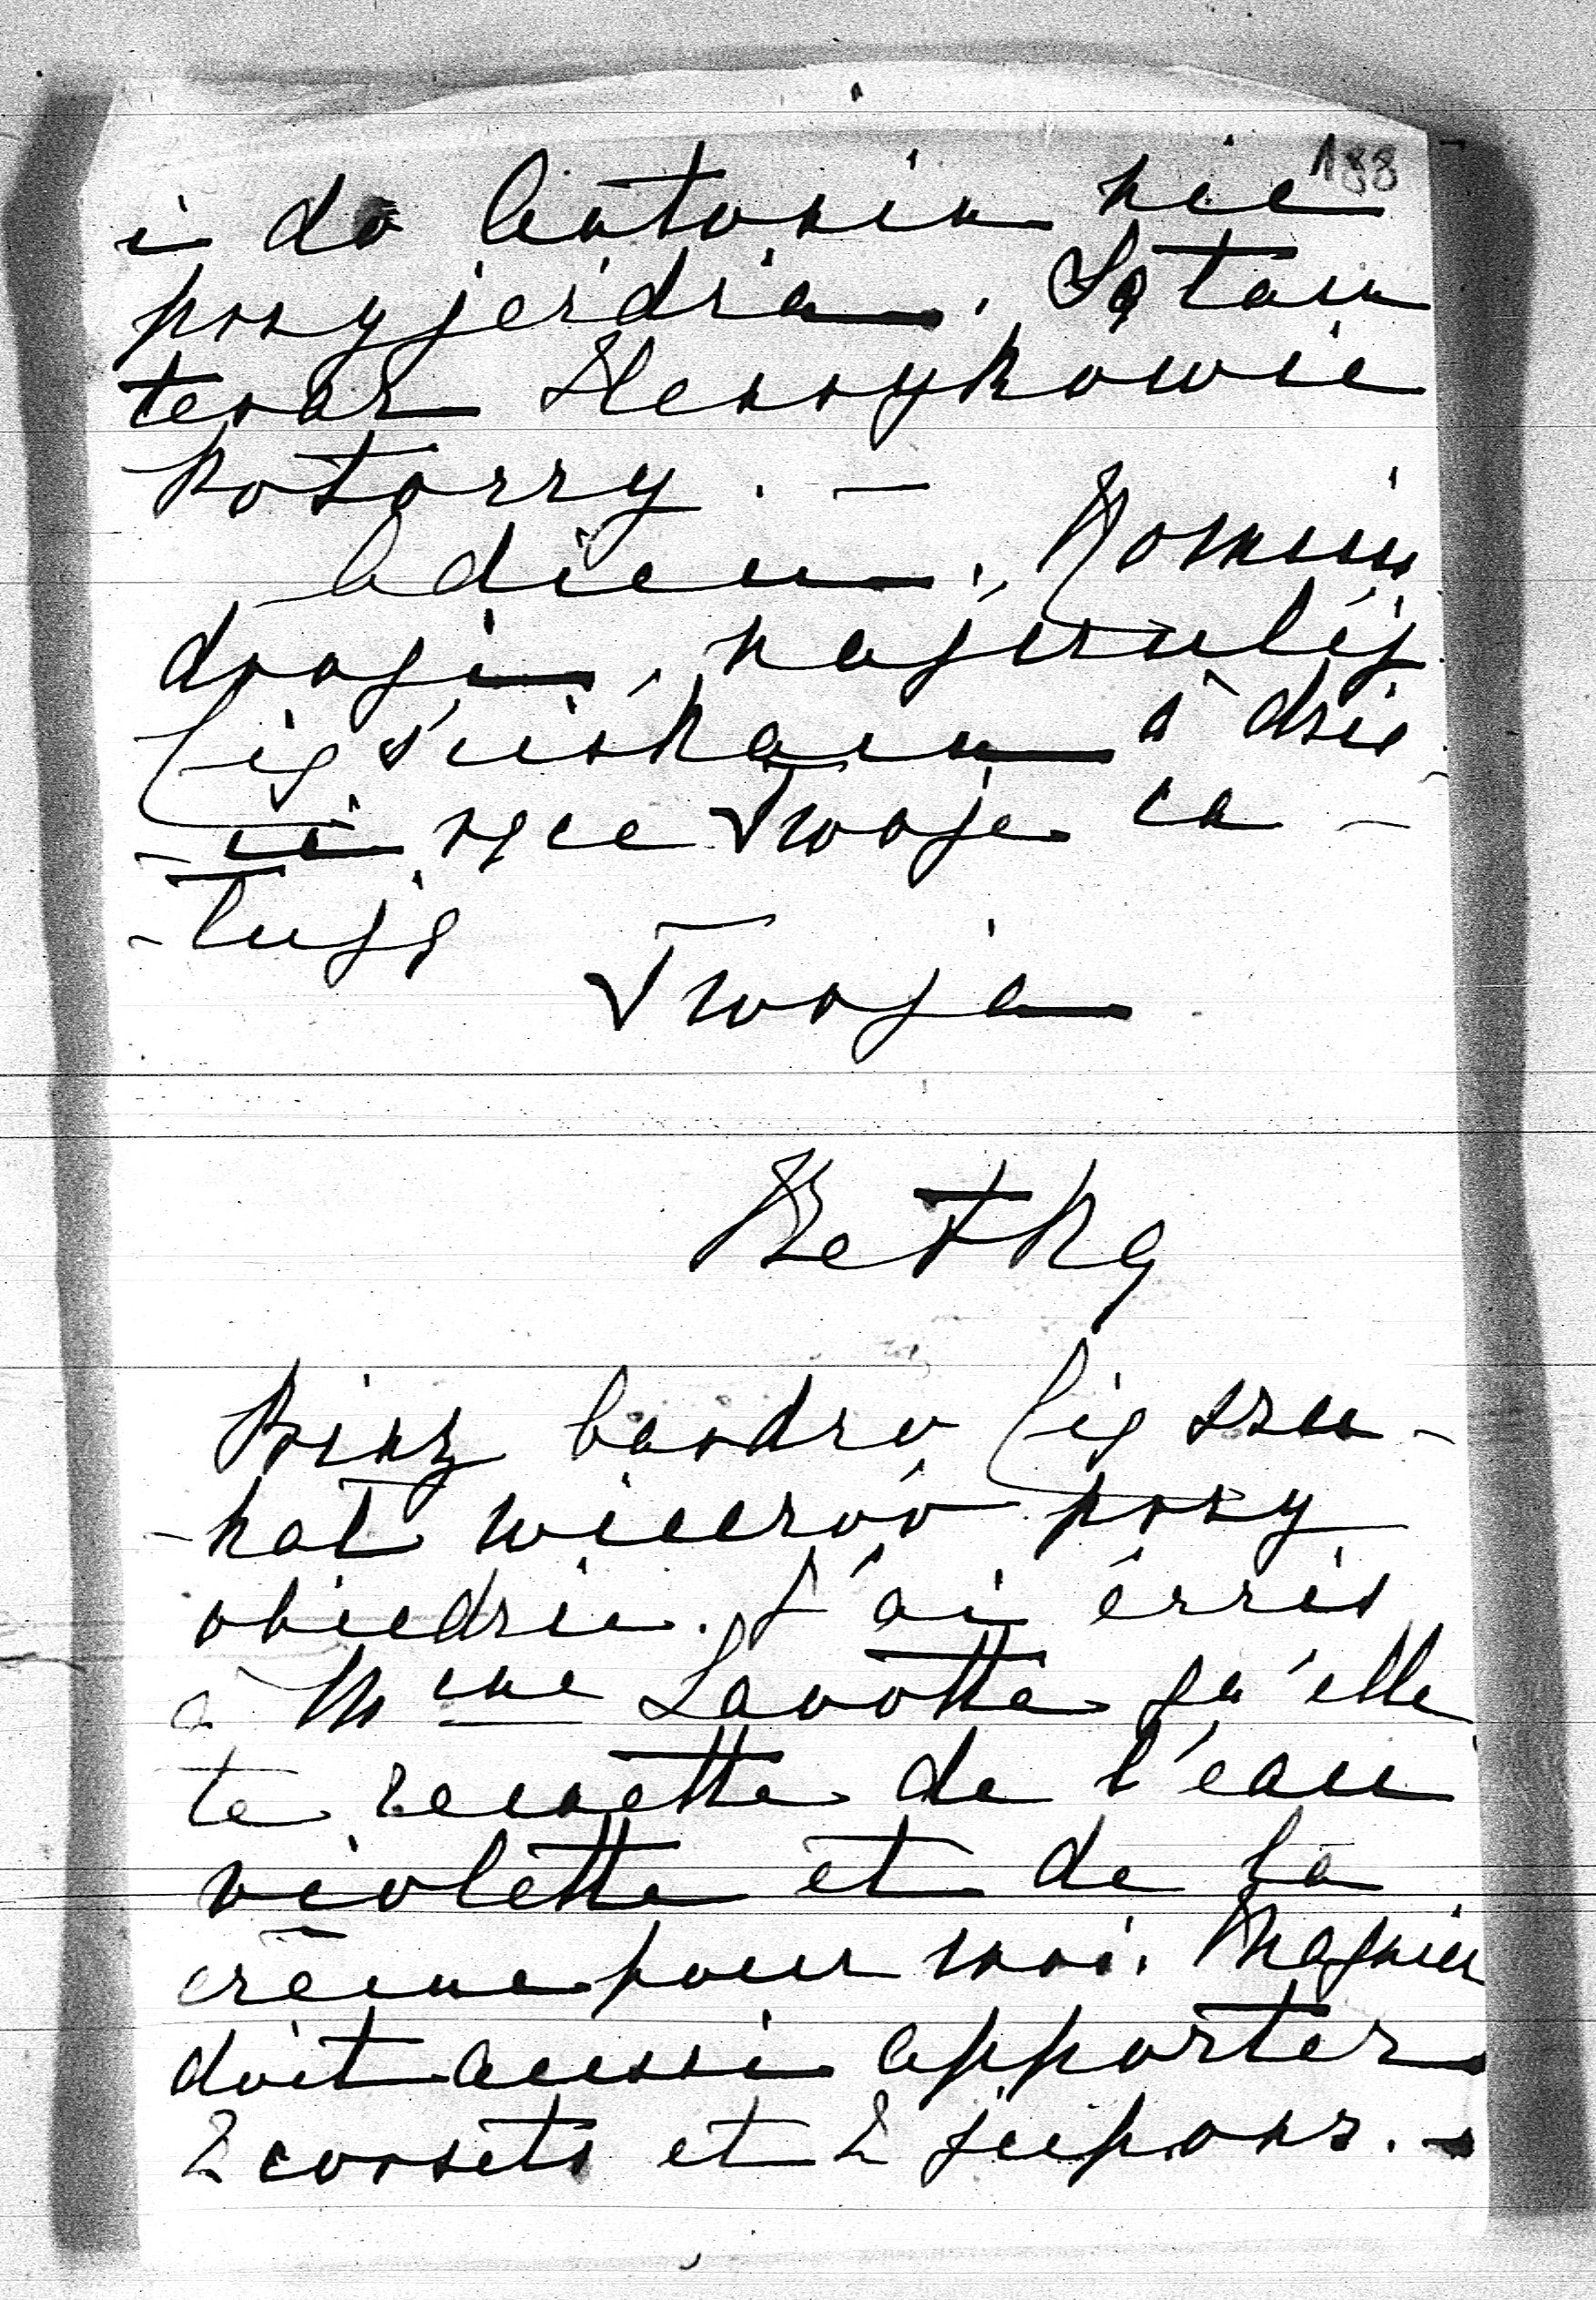 188
i do Antonin nie
przyjeżdża. Są tam
teraz Henrykowie
Potoccy. —
Adieu. Mamuniu
droga, najczulej
Cię ściskam a dzie-
-ci ręce Twoje ca-
-łują
Twoja
Betka
Princ bardzo Cię szu-
-kał wieczór przy
obiedzie. J'ai écris
à Mme Lavotte qu'elle
te remette de l'eau
violette et de la
crême pour moi. Magnier
doit aussi apporter
2 corsets et 2 jupons. -